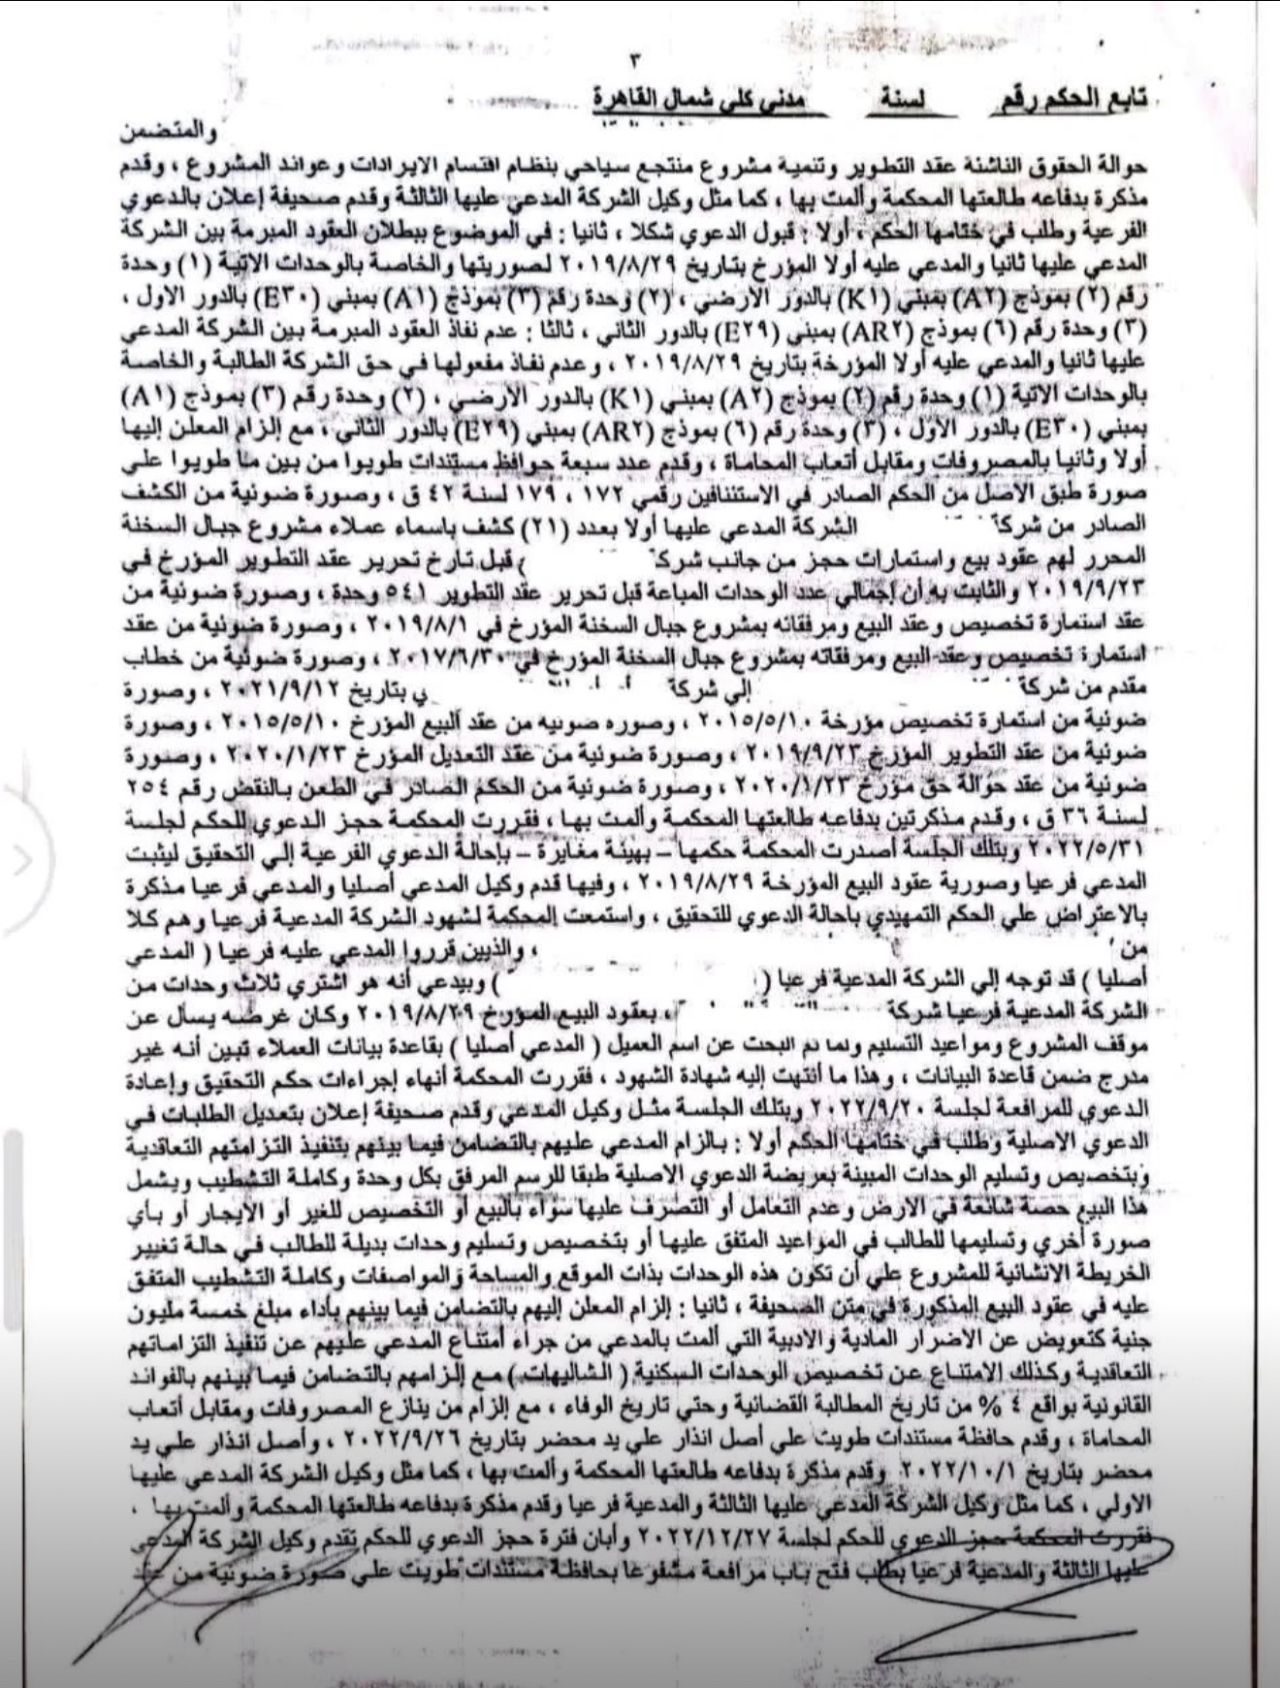 ٣
تابع الحكم رقم لسنة مدني كلي شمال القاهرة
والمتضمن
حوالة الحقوق الناشئة عقد التطوير وتنمية مشروع منتجع سياحي بنظام اقتسام الايرادات وعوائد المشروع ، وقدم
مذكرة بدفاعه طالعتها المحكمة وألمت بها ، كما مثل وكيل الشركة المدعي عليها الثالثة وقدم صحيفة إعلان بالدعوي
الفرعية وطلب في ختامها الحكم ، أولا : قبول الدعوي شكلا ، ثانيا : في الموضوع ببطلان العقود المبرمة بين الشركة
المدعي عليها ثانيا والمدعي عليه أولا المؤرخ بتاريخ ٢٠١٩/٨/٢٩ لصوريتها والخاصة بالوحدات الاتية (١) وحدة
رقم (٢) بموذج (A٢) بمبني (K١) بالدور الارضي ، (٢) وحدة رقم (٣) بموذج (A١) بمبني (E٣٠) بالدور الاول ،
(٣) وحدة رقم (٦) بموذج (AR٢) بمبني (E٢٩) بالدور الثاني ، ثالثا : عدم نفاذ العقود المبرمة بين الشركة المدعي
عليها ثانيا والمدعي عليه أولا المؤرخة بتاريخ ٢٠١٩/٨/٢٩ ، وعدم نفاذ مفعولها في حق الشركة الطالبة والخاصة
بالوحدات الاتية (١) وحدة رقم (٢) بموذج (A٢) بمبني (K١) بالدور الارضي ، (٢) وحدة رقم (٣) بموذج (A١)
بمبني (E٣٠) بالدور الأول ، (٣) وحدة رقم (٦) بموذج (AR٢) بمبني (E٢٩) بالدور الثاني ، مع إلزام المعلن إليها
أولا وثانيا بالمصروفات ومقابل أتعاب المحاماة ، وقدم عدد سبعة حوافظ مستندات طويوا من بين ما طويوا علي
صورة طبق الاصل من الحكم الصادر في الاستئنافين رقمي ١٧٢ ، ١٧٩ لسنة ٤٢ ق ، وصورة ضوئية من الكشف
الصادر من شركة الشركة المدعي عليها أولا بعدد (٢١) كشف باسماء عملاء مشروع جبال السخنة
المحرر لهم عقود بيع واستمارات حجز من جانب شركة ) قبل تارخ تحرير عقد التطوير المؤرخ في
٢٠١٩/٩/٢٣ والثابت به أن إجمالي عدد الوحدات المباعة قبل تحرير عقد التطوير ٥٤١ وحدة ، وصورة ضوئية من
عقد استمارة تخصيص وعقد البيع ومرفقاته بمشروع جبال السخنة المؤرخ في ٢٠١٩/٨/١ ، وصورة ضوئية من عقد
استمارة تخصيص وعقد البيع ومرفقاته بمشروع جبال السخنة المؤرخ في ٢٠١٧/٦/٣٠ ، وصورة ضوئية من خطاب
مقدم من شركة إلي شركة ي بتاريخ ٢٠٢١/٩/١٢ ، وصورة
ضوئية من استمارة تخصيص مؤرخة ٢٠١٥/٥/١٠ ، وصوره ضوئيه من عقد البيع المؤرخ ٢٠١٥/٥/١٠ ، وصورة
ضوئية من عقد التطوير المؤرخ ٢٠١٩/٩/٢٣ ، وصورة ضوئية من عقد التعديل المؤرخ ٢٠٢٠/١/٢٣ ، وصورة
ضوئية من عقد حوالة حق مؤرخ ٢٠٢٠/١/٢٣ ، وصورة ضوئية من الحكم الصادر في الطعن بالنقض رقم ٢٥٤
لسنة ٣٦ ق ، وقدم مذكرتين بدفاعه طالعتها المحكمة وألمت بها ، فقررت المحكمة حجز الدعوي للحكم لجلسة
٢٠٢٢/٥/٣١ وبتلك الجلسة أصدرت المحكمة حكمها – بهيئة مغايرة – بإحالة الدعوي الفرعية إلي التحقيق ليثبت
المدعي فرعيا وصورية عقود البيع المؤرخة ٢٠١٩/٨/٢٩ ، وفيها قدم وكيل المدعي أصليا والمدعي فرعيا مذكرة
بالاعتراض علي الحكم التمهيدي باحالة الدعوي للتحقيق ، واستمعت المحكمة لشهود الشركة المدعية فرعيا وهم كلا
من ، والذيين قرروا المدعي عليه فرعيا ( المدعي
أصليا ) قد توجه إلي الشركة المدعية فرعيا ( ) ويدعي أنه هو اشتري ثلاث وحدات من
الشركة المدعية فرعيا شركة ، بعقود البيع المؤرخ ٢٠١٩/٨/٢٩ وكان غرضه يسأل عن
موقف المشروع ومواعيد التسليم ولما تم البحث عن اسم العميل ( المدعي أصليا ) بقاعدة بيانات العملاء تبين أنه غير
مدرج ضمن قاعدة البيانات ، وهذا ما أنتهت إليه شهادة الشهود ، فقررت المحكمة أنهاء إجراءات حكم التحقيق وإعادة
الدعوي للمرافعة لجلسة ٢٠٢٢/٩/٢٠ وبتلك الجلسة مثل وكيل المدعي وقدم صحيفة إعلان بتعديل الطلبات في
الدعوي الاصلية وطلب في ختامها الحكم أولا : بالزام المدعي عليهم بالتضامن فيما بينهم بتنفيذ التزامتهم التعاقدية
وبتخصيص وتسليم الوحدات المبينة بعريضة الدعوي الاصلية طبقا للرسم المرفق بكل وحدة وكاملة التشطيب ويشمل
هذا البيع حصة شائعة في الارض وعدم التعامل أو التصرف عليها سواء بالبيع أو التخصيص للغير أو الايجار أو بأي
صورة أخري وتسليمها للطالب في المواعيد المتفق عليها أو بتخصيص وتسليم وحدات بديلة للطالب في حالة تغيير
الخريطة الانشائية للمشروع علي أن تكون هذه الوحدات بذات الموقع والمساحة والمواصفات وكاملة التشطيب المتفق
عليه في عقود البيع المذكورة في متن الصحيفة ، ثانيا : إلزام المعلن إليهم بالتضامن فيما بينهم بأداء مبلغ خمسة مليون
جنية كتعويض عن الاضرار المادية والادبية التي ألمت بالمدعي من جراء أمتناع المدعي عليهم عن تنفيذ التزاماتهم
التعاقدية وكذلك الامتناع عن تخصيص الوحدات السكنية ( الشاليهات ) مع إلزامهم بالتضامن فيما بينهم بالفوائد
القانونية بواقع ٤ % من تاريخ المطالبة القضائية وحتي تاريخ الوفاء ، مع إلزام من ينازع المصروفات ومقابل أتعاب
المحاماة ، وقدم حافظة مستندات طويت علي أصل انذار علي يد محضر بتاريخ ٢٠٢٢/٩/٢٦ ، وأصل انذار علي يد
محضر بتاريخ ٢٠٢٢/١٠/١ وقدم مذكرة بدفاعه طالعتها المحكمة وألمت بها ، كما مثل وكيل الشركة المدعي عليها
الاولي ، كما مثل وكيل الشركة المدعي عليها الثالثة والمدعية فرعيا وقدم مذكرة بدفاعه طالعتها المحكمة وألمت بها ،
فقررت المحكمة حجز الدعوي للحكم لجلسة ٢٠٢٢/١٢/٢٧ وأبان فترة حجز الدعوي للحكم تقدم وكيل الشركة المدعي
عليها الثالثة والمدعية فرعيا بطلب فتح باب مرافعة مشفوعا بحافظة مستندات طويت علي صورة ضوئية من عقد